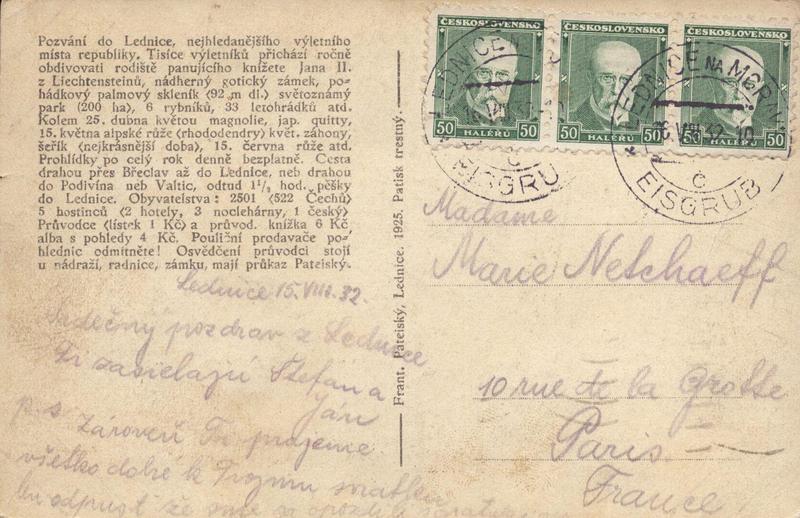 Pozvání do Lednice, nejhledanějšího výletního
místa republiky. Tisíce výletníků přichází ročně
obdivovati rodiště panujícího knížete Jana II.
z Liechtensteinů, nádherný gotický zámek, po-
hádkový palmový skleník (92 m dl.) světoznámý
park (200 ha), 6 rybníků, 33 letohrádků atd.
Kolem 25. dubna květou magnolie, jap. quitty,
15. května alpské růže (rhododendry) květ. záhony,
šeřík (nejkrásnější doba), 15. června růže atd.
Prohlídky po celý rok denně bezplatně. Cesta
drahou přes Břeclav až do Lednice, neb drahou
do Podivína neb Valtic, odtud 1½ hod. pěšky
do Lednice. Obyvatelstva: 2501 (522 Čechů)
5 hostinců (2 hotely, 3 noclehárny, 1 český)
Průvodce (lístek 1 Kč) a průvod. knížka 6 Kč
alba s pohledy 4 Kč. Pouliční prodavače po-
hlednic odmítněte! Osvědčení průvodci stojí
u nádraží, radnice, zámku, mají průkaz Pateiský.
Lednice 15. VIII. 32.
Srdečný pozdrav z Lednice
Ti zasielajú Štefan a
Ján
p. s. Zároveň Ti prajeme
všetko dobré k Tvojmu sviatku
Frant. Pateiský, Lednice. 1925. Patisk trestný.
ČESKOSLOVENSKO
ČESKOSLOVENSKO
ČESKOSLOVENSKO
50 HALÉŘŮ 50
50 HALÉŘŮ 50
50 HALÉŘŮ 50
LEDNICE
EISGRUB
LEDNICE NA MORAVĚ
VIII 32
Č
EISGRUB
Madame
Marie Netchaeff
10 rue de la Grotte
Paris
France